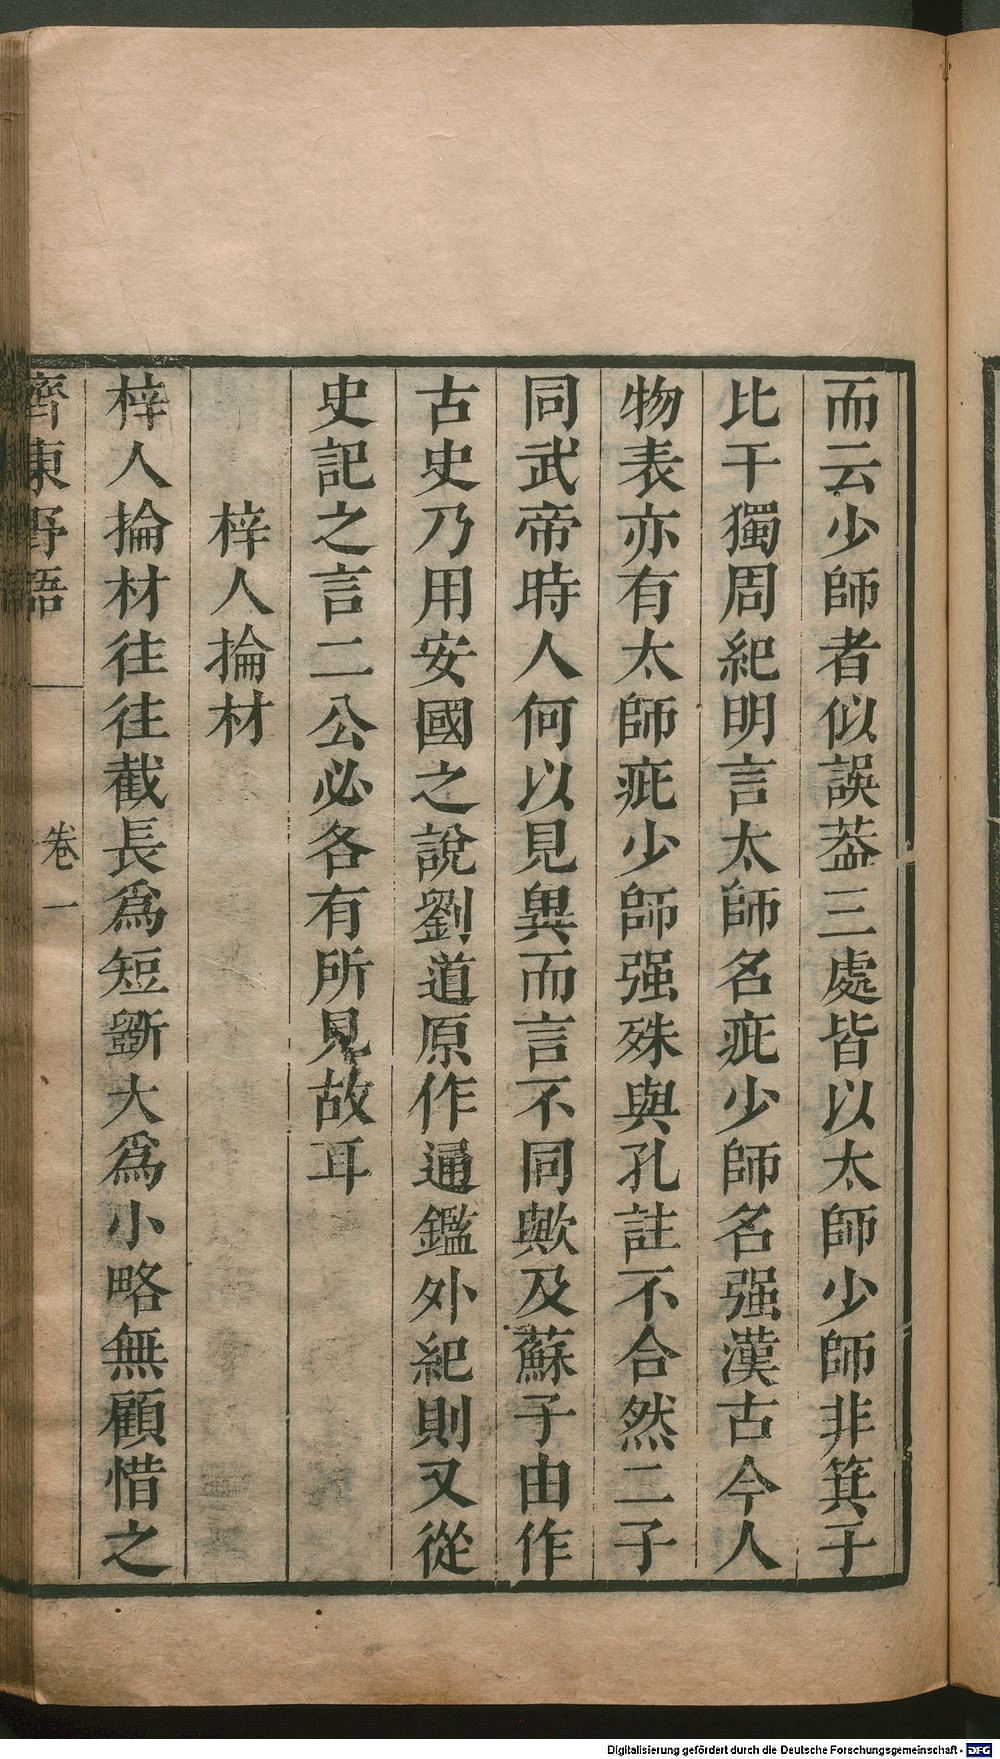 而云少師者似誤葢三處皆以太師少師非箕子
比干獨周紀明言太師名疵少師名强漢古今人
物表亦有太師疵少師强殊與孔註不合然二子
同武帝時人何以見異而言不同歟及蘇子由作
古史乃用安國之說劉道原作通鑑外紀則又從
史記之言二公必各有所見故耳
梓人掄材
梓人掄材往往截長爲短斲大爲小略無顧惜之
齊東野語
卷一
Digitalisierung gefördert durch die Deutsche Forschungsgemeinschaft - DFG